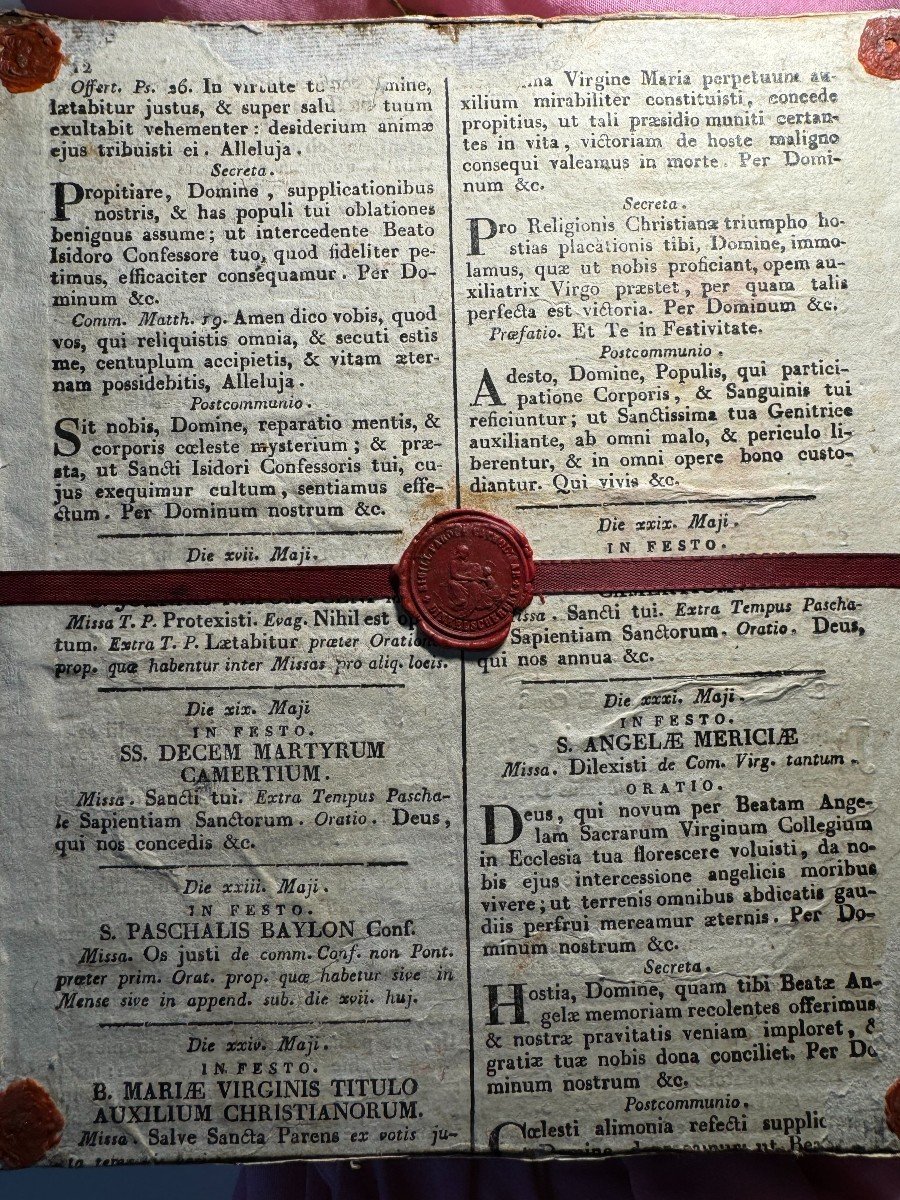 12
Offert. Ps. 26. In virtute
lætabitur justus, & super salu tuum
exultabit vehementer: desiderium animæ
ejus tribuisti ei. Alleluja.
Secreta.
Propitiare, Domine, supplicationibus
nostris, & has populi tui oblationes
benignus assume; ut intercedente Beato
Isidoro Confessore tuo, quod fideliter pe-
timus, efficaciter consequamur. Per Do-
minum &c.
Comm. Matth. 19. Amen dico vobis, quod
vos, qui reliquistis omnia, & secuti estis
me, centuplum accipietis, & vitam æter-
nam possidebitis, Alleluja.
Postcommunio.
Sit nobis, Domine, reparatio mentis, &
corporis cœleste mysterium; & præ-
sta, ut Sancti Isidori Confessoris tui, cu-
jus exequimur cultum, sentiamus effe-
ctum. Per Dominum nostrum &c.
Die xvii. Maji.
Missa T. P. Protexisti. Evag. Nihil est
tum. Extra T. P. Lætabitur præter
prop. quæ habentur inter Missas pro aliq. locis.
Die xix. Maji
IN FESTO.
SS. DECEM MARTYRUM
CAMERTIUM.
Missa. Sancti tui. Extra Tempus Pascha-
le Sapientiam Sanctorum. Oratio. Deus,
qui nos concedis &c.
Die xxiii. Maji.
IN FESTO.
S. PASCHALIS BAYLON Conf.
Missa. Os justi de comm. Conf. non Pont.
præter prim. Orat. prop. quæ habetur sive in
Mense sive in append. sub. die xvii. huj.
Die xxiv. Maji.
IN FESTO.
B. MARIÆ VIRGINIS TITULO
AUXILIUM CHRISTIANORUM.
Missa. Salve Sancta Parens ex votis ju-
Virgine Maria perpetuum au-
xilium mirabiliter constituisti, concede
propitius, ut tali præsidio muniti certan-
tes in vita, victoriam de hoste maligno
consequi valeamus in morte. Per Domi-
num &c.
Secreta.
Pro Religionis Christianæ triumpho ho-
stias placationis tibi, Domine, immo-
lamus, quæ ut nobis proficiant, opem au-
xiliatrix Virgo præstet, per quam talis
perfecta est victoria. Per Dominum &c.
Præfatio. Et Te in Festivitate.
Postcommunio.
Adesto, Domine, Populis, qui partici-
patione Corporis, & Sanguinis tui
reficiuntur; ut Sanctissima tua Genitrice
auxiliante, ab omni malo, & periculo li-
berentur, & in omni opere bono custo-
diantur. Qui vivis &c.
Die xxix. Maji.
IN FESTO.
Sancti tui. Extra Tempus Pascha-
Sapientiam Sanctorum. Oratio. Deus,
qui nos annua &c.
Die xxxi. Maji.
IN FESTO.
S. ANGELÆ MERICIÆ
Missa. Dilexisti de Com. Virg. tantum.
ORATIO.
Deus, qui novum per Beatam Ange-
lam Sacrarum Virginum Collegium
in Ecclesia tua florescere voluisti, da no-
bis ejus intercessione angelicis moribus
vivere; ut terrenis omnibus abdicatis gau-
diis perfrui mereamur æternis. Per Do-
minum nostrum &c.
Secreta.
Hostia, Domine, quam tibi Beatæ An-
gelæ memoriam recolentes offerimus
& nostræ pravitatis veniam imploret, &
gratiæ tuæ nobis dona conciliet. Per Do
minum nostrum &c.
Postcommunio.
Cœlesti alimonia refecti supplic